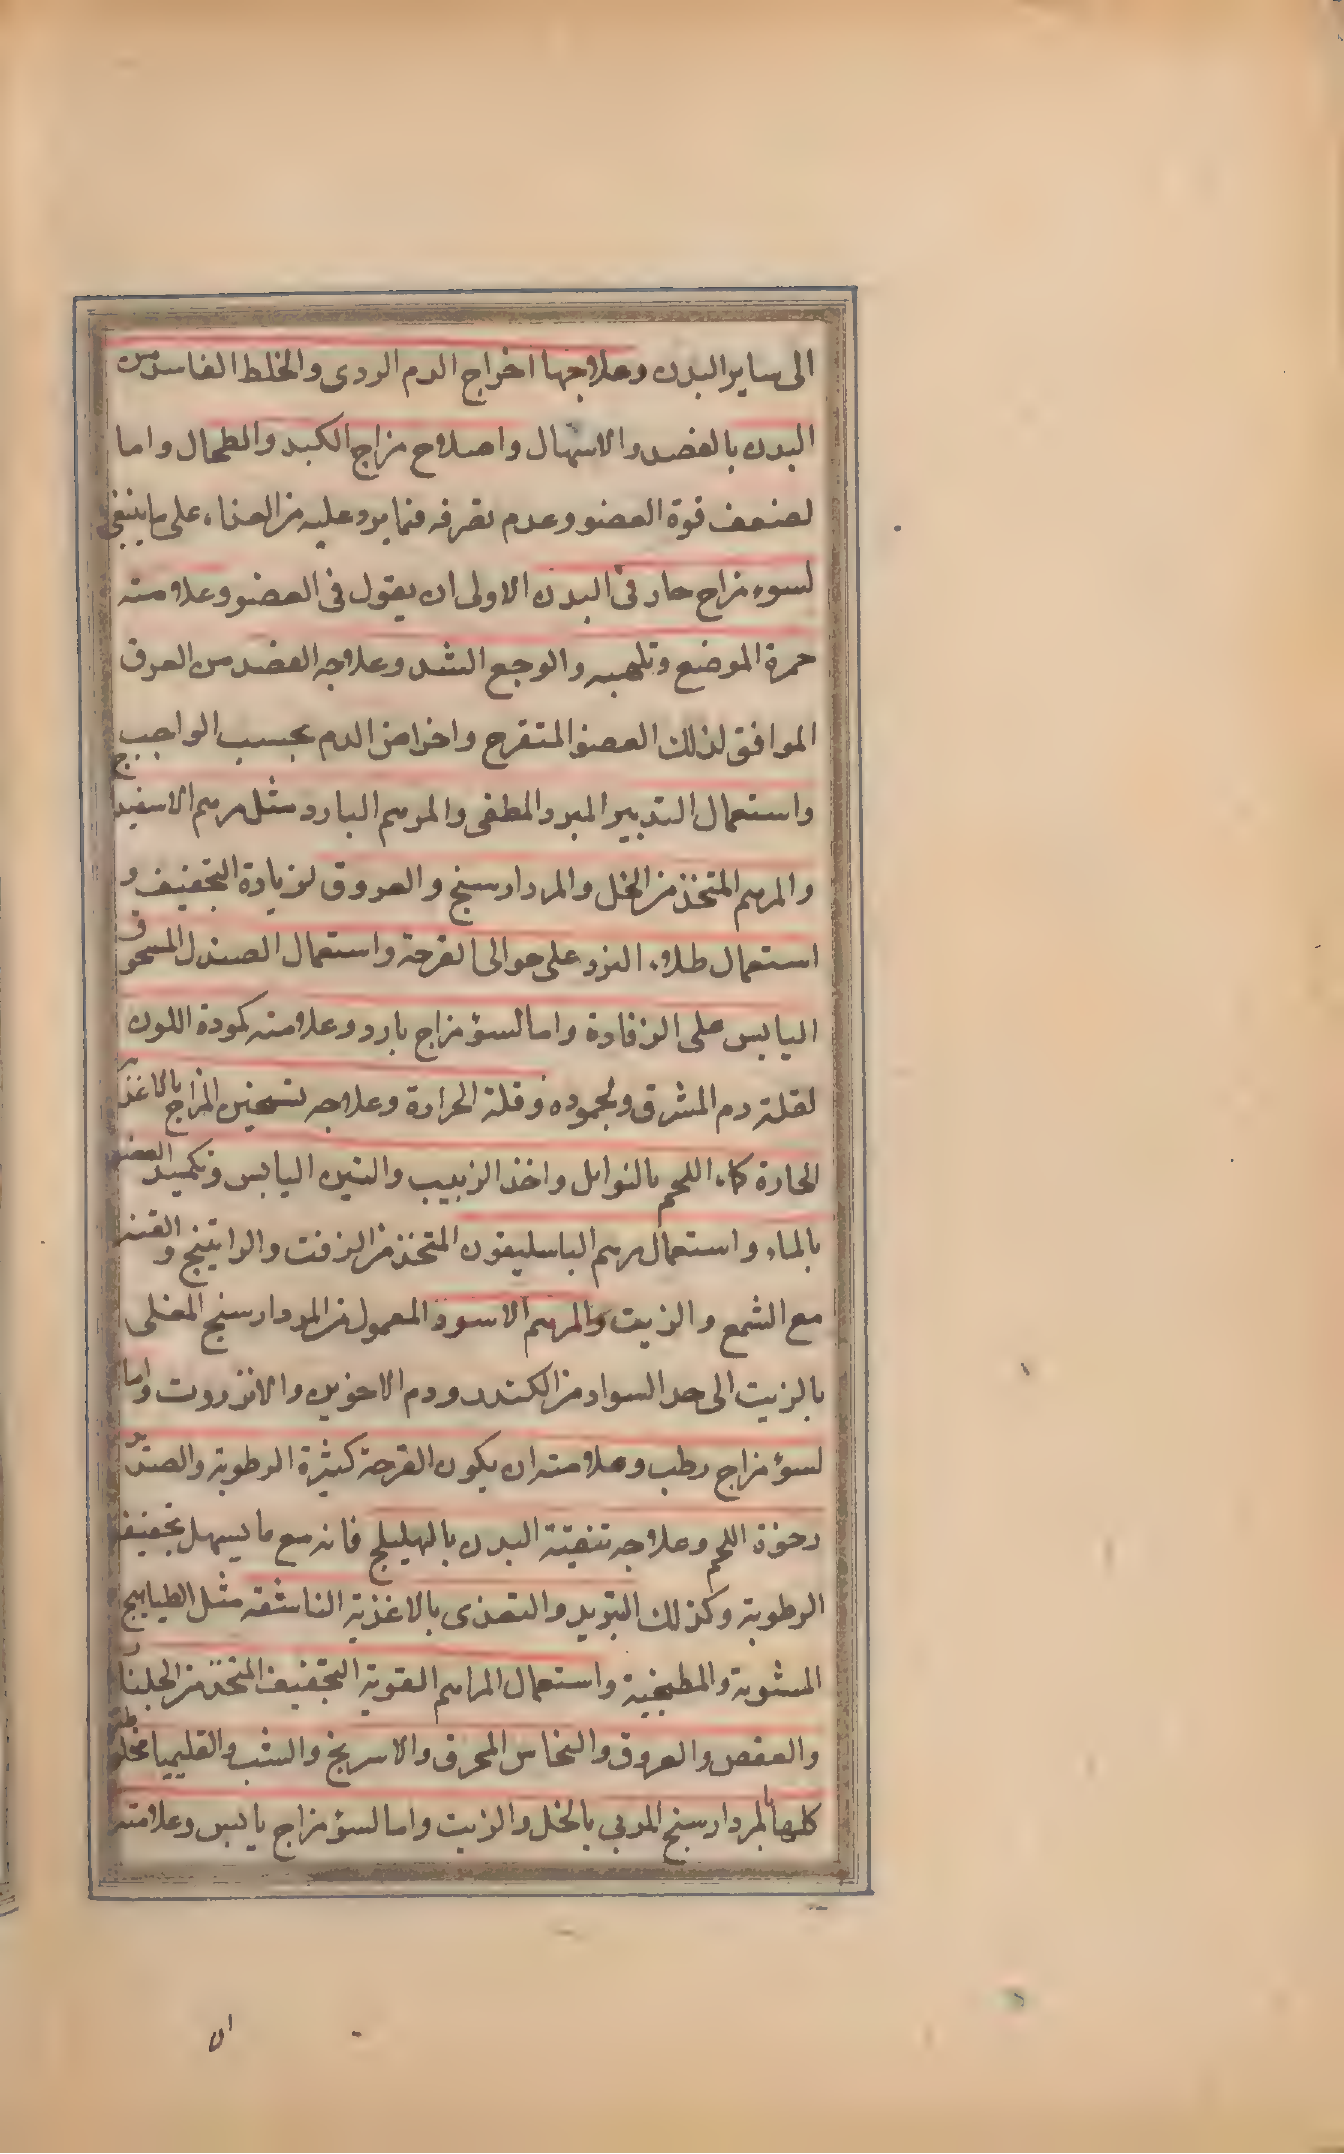 الى ساير البدن وعلاجها اخراج الدم الردى والخلط الفاسد من
البدن بالفصد والاسهال واصلاح مزاج الكبد والطحال واما
لضعف قوة العضو وعدم تصرفه فيما يرد عليه من الغذاء على ما ينبغى
لسوء مزاج حار فى البدن الاولى ان يقول فى العضو وعلامته
حمرة الموضع وتلهبه والوجع الشد وعلاجه الفصد من العرق
الموافق لذلك العضو المتقرح واخراج من الدم بحسب الواجب
واستعمال التدبير المبرد المطفى والمرهم البارد مثل مرهم الاسفيدا
والمرهم المتخذ من الخل والمردارسنج والعروق لزيادة التجفيف و
استعمال طلاء البرد على حوالى القرحة واستعمال الصندل المسحوق
اليابس على الزفادة واما لسؤ مزاج بارد وعلامته كمودة اللون
لقلة دم المشرق ولجموده وقلة الحرارة وعلاجه تسخين المزاج بالاغذية
الحارة كماء اللحم بالتوابل واخذ الزبيب والتين اليابس وتكميد العضو
بالماء واستعمال مرهم الباسليقون المتخذ من الزفت والراتينج والقنه
مع الشمع والزيت والمرهم الاسود المعمول من المردارسنج المغلى
بالزيت الى حد السواد من الكندر ودم الاخوين والانزروت واما
لسؤ مزاج رطب وعلامته ان يكون القرحة كثيرة الرطوبة والصديد
رخوة اللحم وعلاجه تنقية البدن بالهليلج فانه مع ما يسهل تجفيف
الرطوبة وكذلك التربد والتغذى بالاغذية الناشفة مثل الطياهيج
المشوية والمطجنية واستعمال المراهم القوية التجفيف المتخذ من الجلنار
والعفص والعروق والنحاس المحرق والاسرنج والشب والقليميا مخلوطة
كلها بالمردارسنج المربى بالخل والزيت واما لسؤ مزاج يابس وعلامته
ان